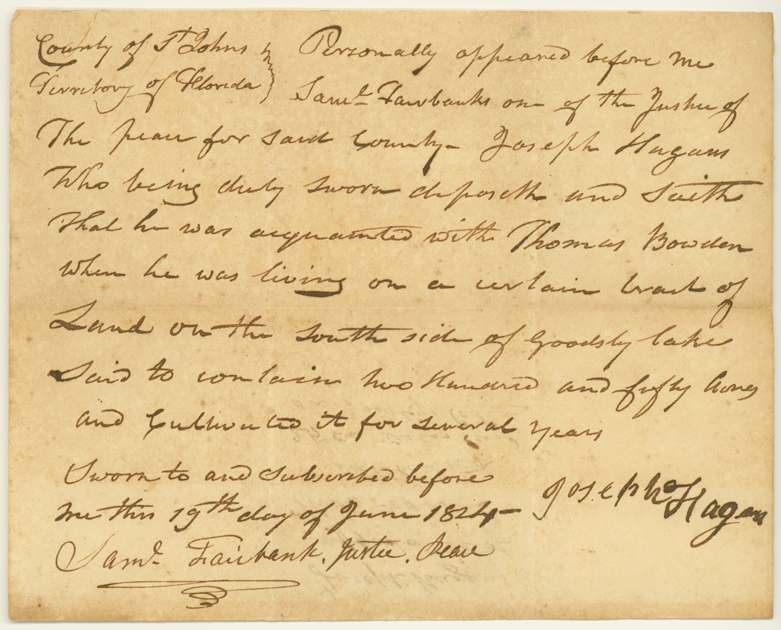 County of St Johns } Personally appeared before me
Territory of Florida } Saml Fairbanks one of the Justice of
The peace for said County - Joseph Hagans
Who being duly sworn deposeth and saith
that he was acquainted with Thomas Bowden
when he was living on a certain tract of
Land on the south side of Goodsby lake
Said to contain two Hundred and fifty Acres
and Cultivated it for several years
Sworn to and subscribed before
me this 19th day of June 1824 - Joseph Hagans
Saml Fairbank. Justice. Peace